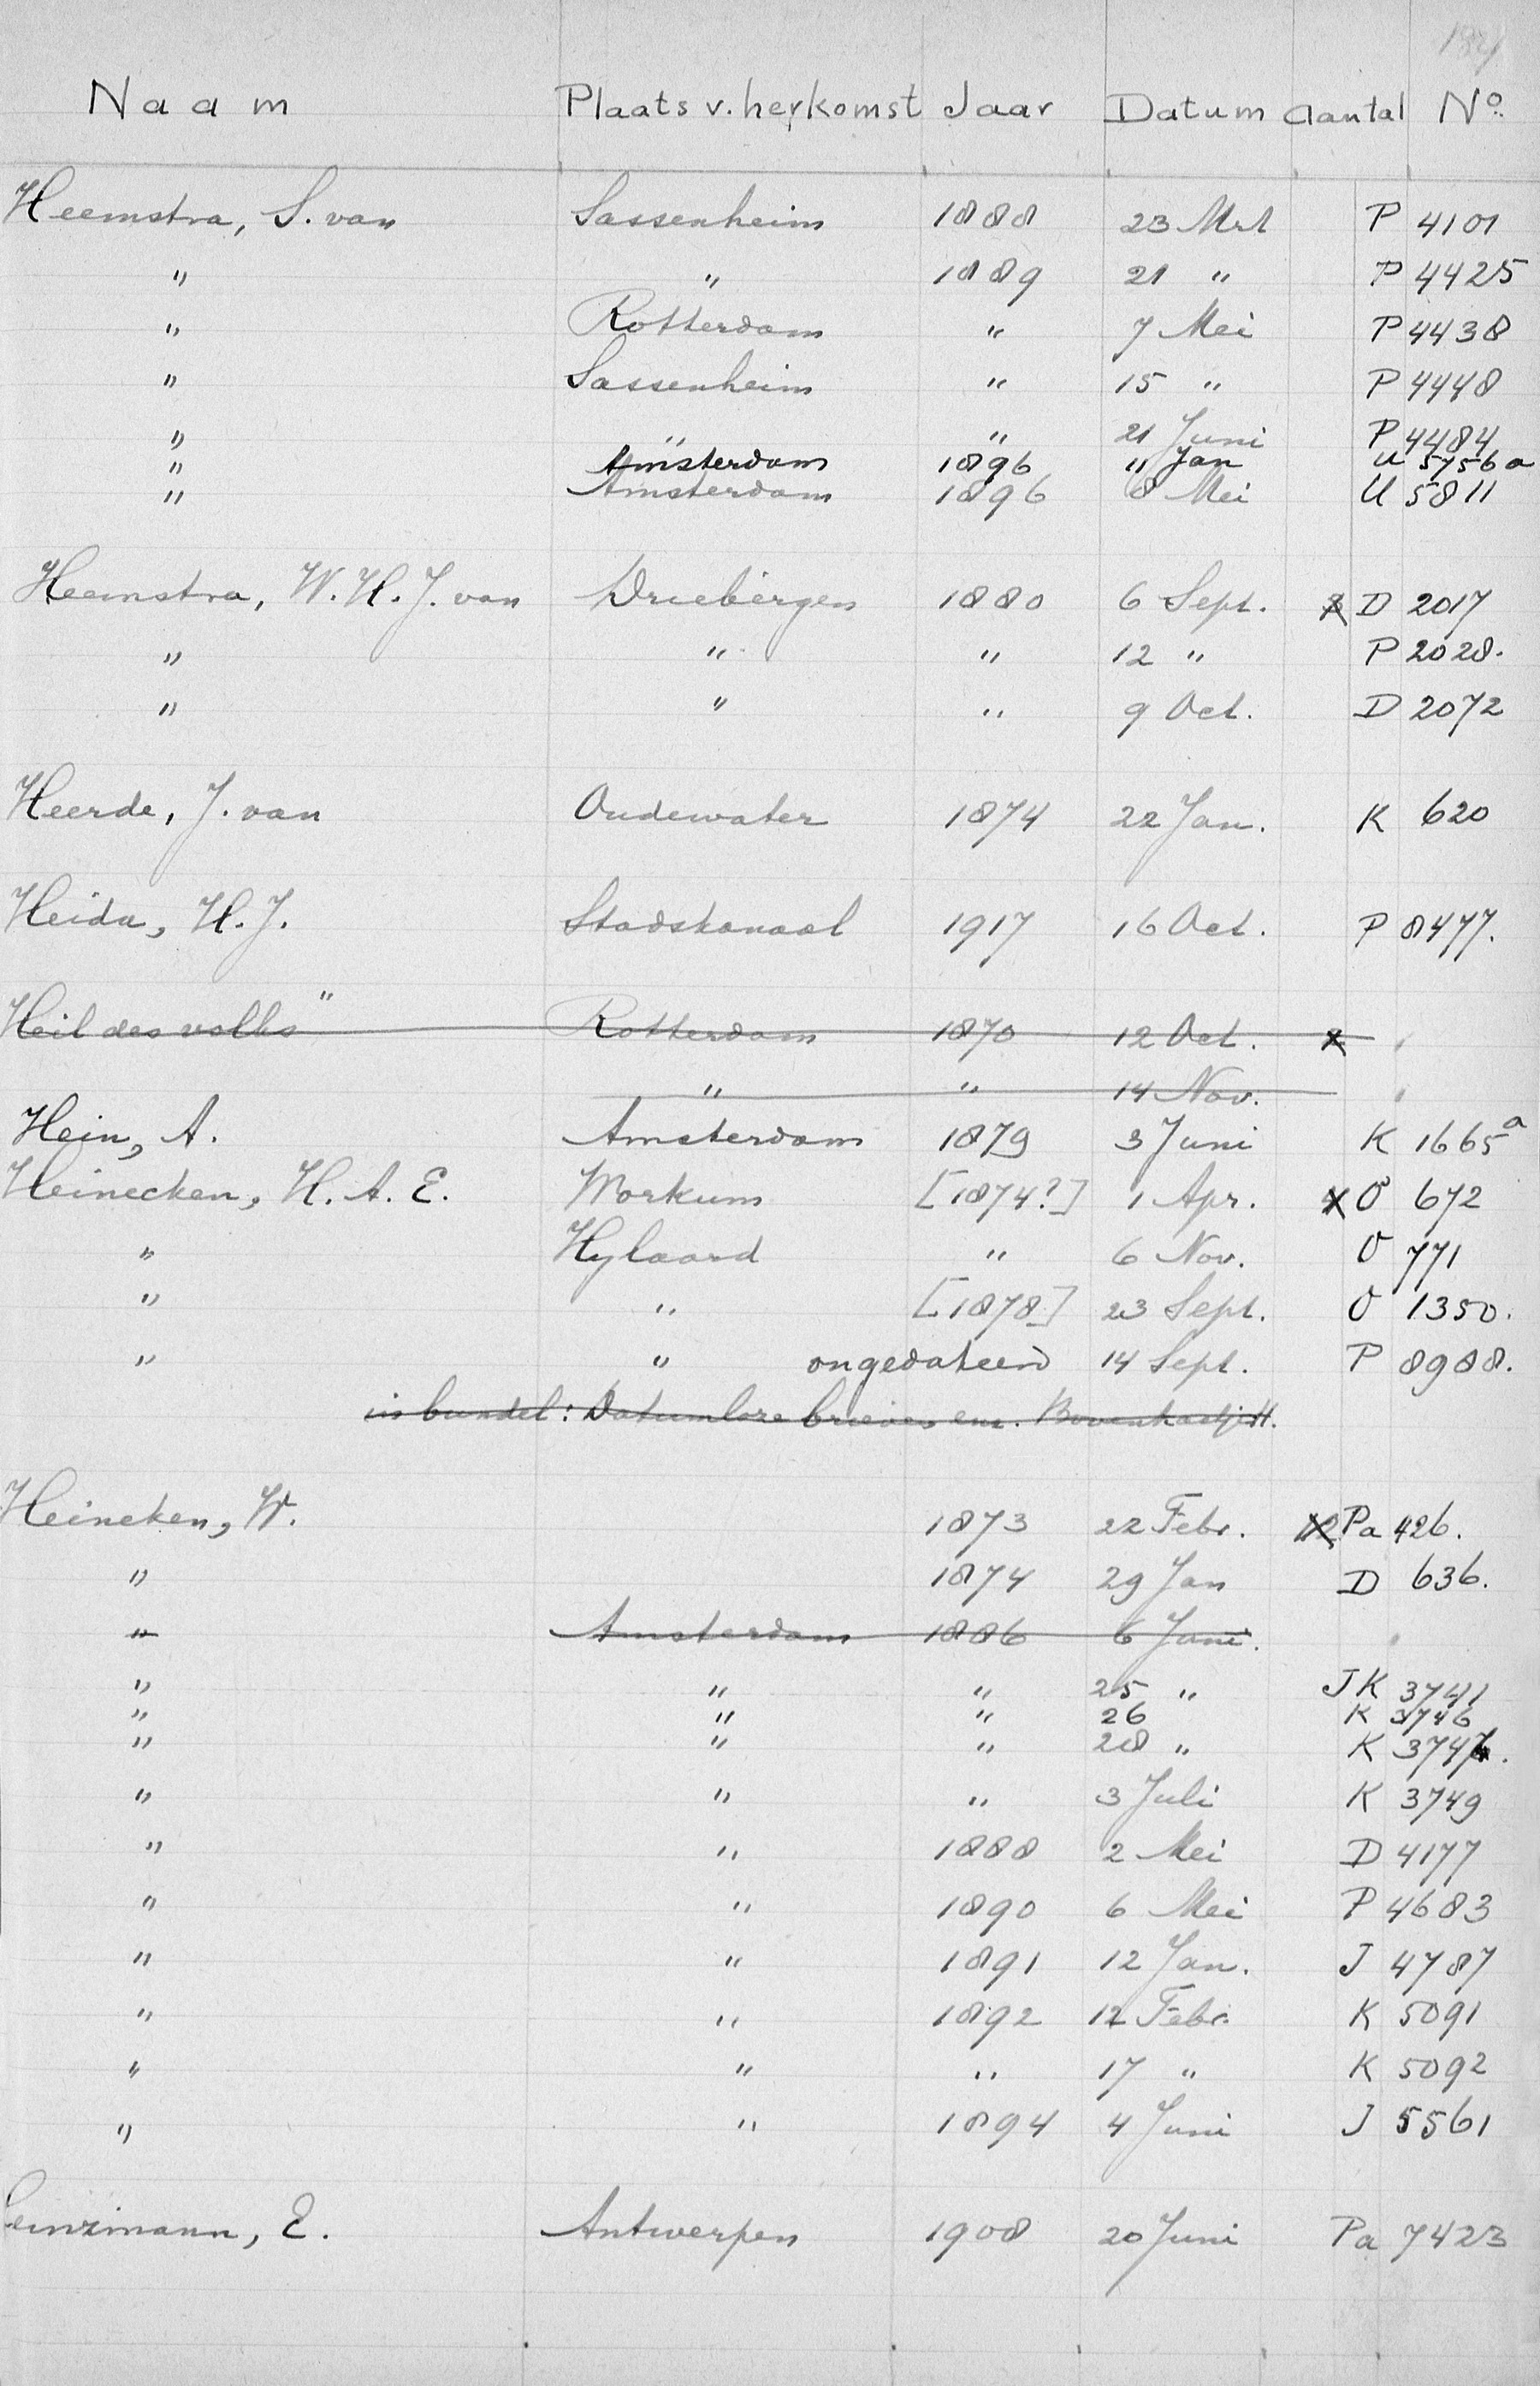 Naam Plaats v. herkomst Jaar Datum Aantal No.
Heemstra, S. van Sassenheim 1888 23 Mrt P 4101
" " 1889 21 " P 4425
" Rotterdam " 7 Mei P 4438
" Sassenheim " 15 " P 4448
" " " 21 Juni P 4484
" Amsterdam 1896 11 Jan U 5756a
" Amsterdam 1896 8 Mei U 5811
Heemstra, W. H. J. van Driebergen 1880 6 Sept. 3 D 2017
" " " 12 " P 2028.
" " " 9 Oct. D 2072
Heerde, J. van Oudewater 1874 22 Jan. K 620
Heida, H. J. Stadskanaal 1917 16 Oct. P 8477.
Heil des volks" Rotterdam 1870 12 Oct. 2
" " 14 Nov.
Hein, A. Amsterdam 1879 3 Juni K 1665a
Heinecken, H. A. E. Workum [1874?] 1 Apr. 4 O 672
" Hylaard " 6 Nov. O 771
" " [1878] 23 Sept. O 1350.
" " ongedateerd 14 Sept. P 8988.
in bundel: Datumloze brieven enz. Bovenkastje H.
Heineken, W. 1873 22 Febr. 12 Pa 426.
" 1874 29 Jan D 636.
" Amsterdam 1886 6 Juni.
" " " 25 " JK 3741
" " " 26 K 3746
" " " 28 " K 3747.
" " " 3 Juli K 3749
" " 1888 2 Mei D 4177
" " 1890 6 Mei P 4683
" " 1891 12 Jan. J 4787
" " 1892 12 Febr. K 5091
" " " 17 " K 5092
" " 1894 4 Juni J 5561
einzmann, E. Antwerpen 1908 20 Juni Pa 7423